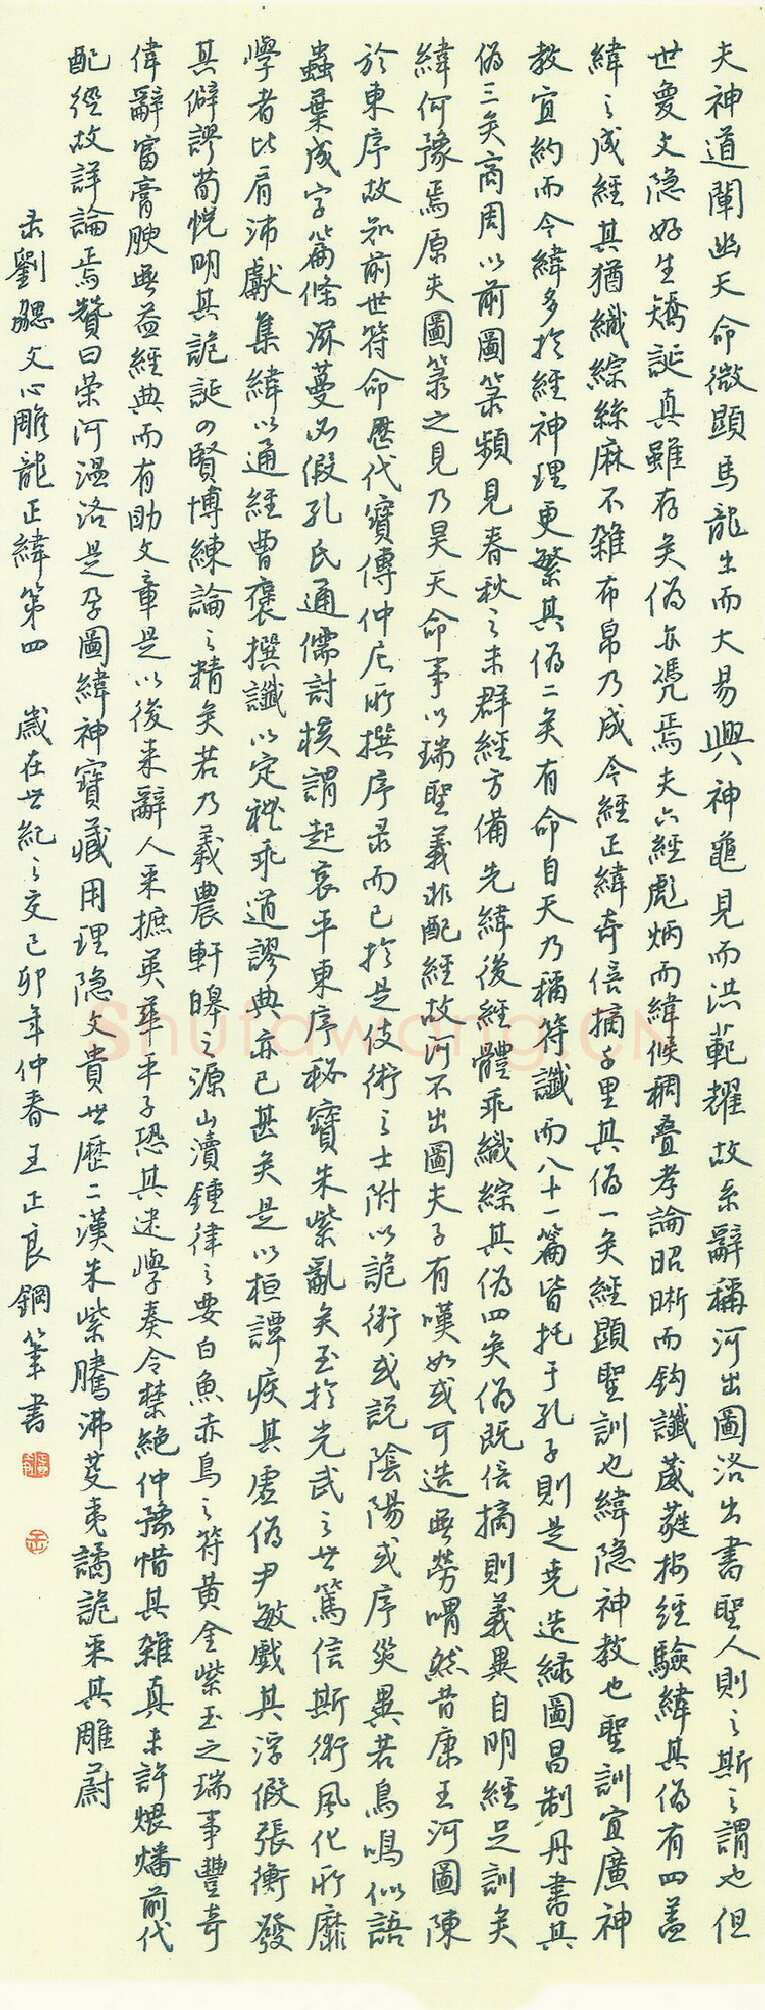 夫神道闡幽天命微顯馬龍出而大易興神龜見而洪範耀故系辭稱河出圖洛出書聖人則之斯之謂也但
世夐文隐好生矯誕真雖存矣偽亦凭焉夫六經彪炳而緯候稠叠孝論昭晰而鈎讖葳蕤按經驗緯其偽有四盖
緯之成經其猶織綜絲麻不雜布帛乃成今經正緯奇倍摘千里其偽一矣經顯聖訓也緯隐神教也聖訓宜廣神
教宜約而今緯多於經神理更繁其偽二矣有命自天乃稱符讖而八十一篇皆托于孔子則是堯造緑圖昌制丹書其
偽三矣商周以前圖箓頻見春秋之末群經方備先緯後經體乖織綜其偽四矣偽既倍摘則義異自明經足訓矣
緯何豫焉原夫圖箓之見乃昊天命事以瑞聖義非配經故河不出圖夫子有嘆如或可造無勞喟然昔康王河圖陳
於東序故知前世符命歷代寶傳仲尼所撰序录而已於是伎術之士附以詭術或説陰陽或序災異若鳥鳴似語
蟲葉成字篇條滋蔓必假孔氏通儒討核謂起哀平東序秘寶朱紫亂矣至於光武之世篤信斯術風化所靡
學者比肩沛獻集緯以通經曹褒撰讖以定禮乖道謬典亦已甚矣是以桓譚疾其虚偽尹敏戲其浮假張衡發
其僻謬荀悦明其詭誕四賢博練論之精矣若乃羲農軒皞之源山瀆鍾律之要白魚赤烏之符黄金紫玉之瑞事豐奇
偉辭富膏腴無益經典而有助文章是以後来辭人采摭英華平子恐其迷學奏令禁絶仲豫惜其雜真未許煨燔前代
配經故詳論焉贊曰榮河温洛是孕圖緯神寶藏用理隐文貴世歷二漢朱紫騰沸芟夷譎詭采其雕蔚
录劉勰文心雕龍正緯第四 歲在世紀之交己卯年仲春王正良鋼筆書
Shufawang.CN